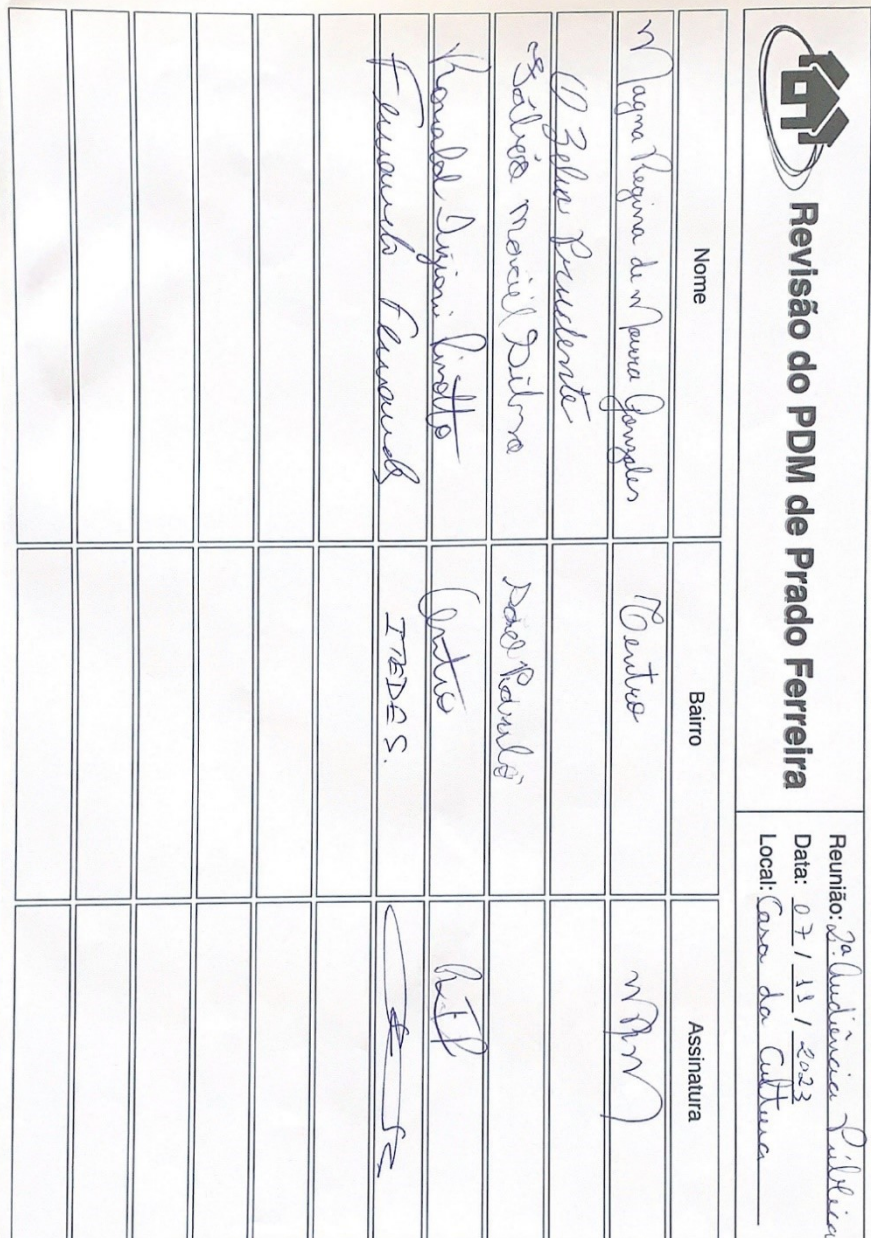 Revisão do PDM de Prado Ferreira
Reunião: 2ª Audiência Pública
Data: 07 / 11 / 2023
Local: Casa da Cultura
Nome Bairro Assinatura
Magna Regina de Moura Gonzales Centro
Prudente
Maciel Silva
Ronaldo Pinotto Centro
Fernando Fernandes ITEDES.